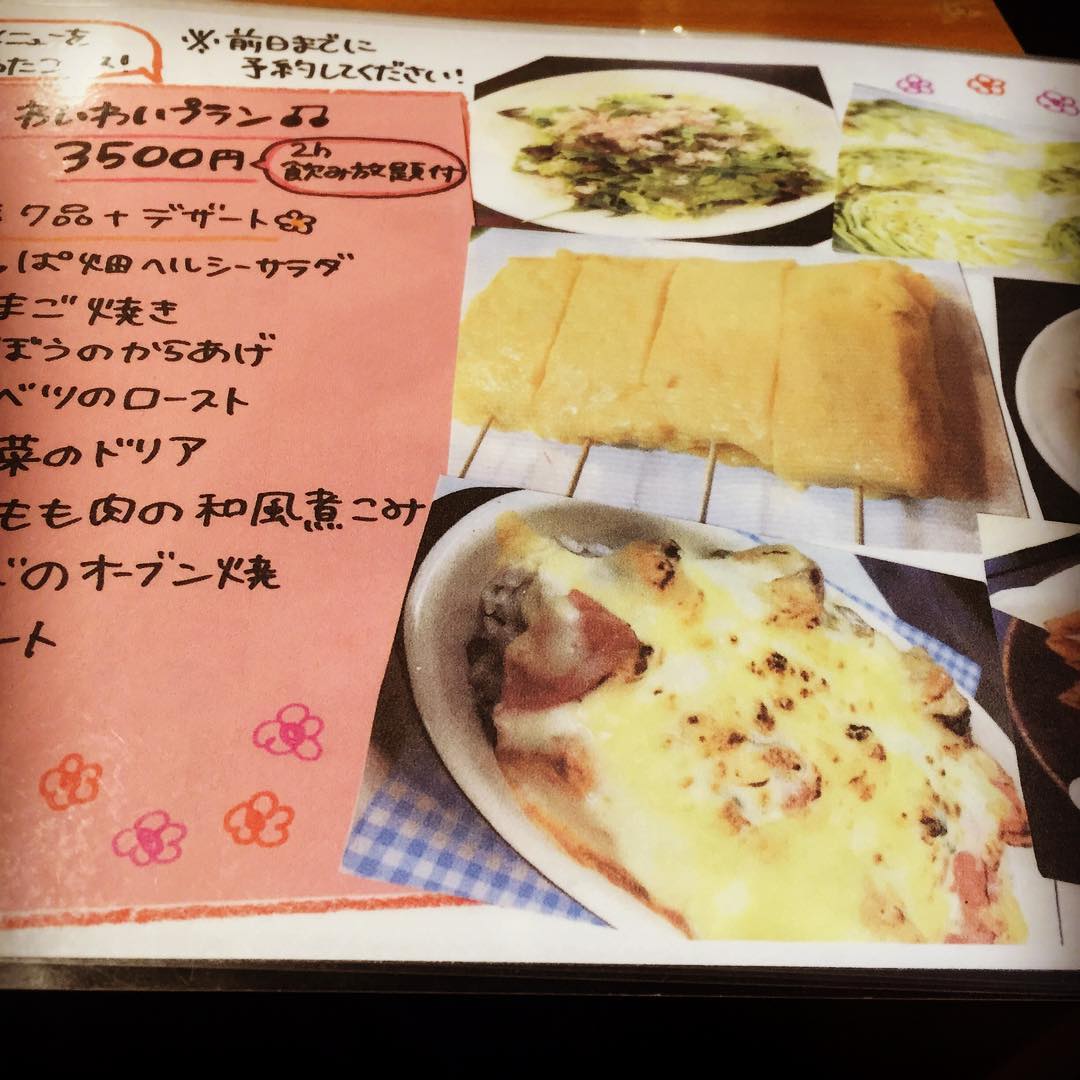 ニューを
※前日までに
予約してください!
わいわいプラン♫
3500円
2h
飲み放題付
7品+デザート
ぱ畑ヘルシーサラダ
まご焼き
ぼうのからあげ
ベツのロースト
菜のドリア
もも肉の和風煮こみ
のオーブン焼
ート